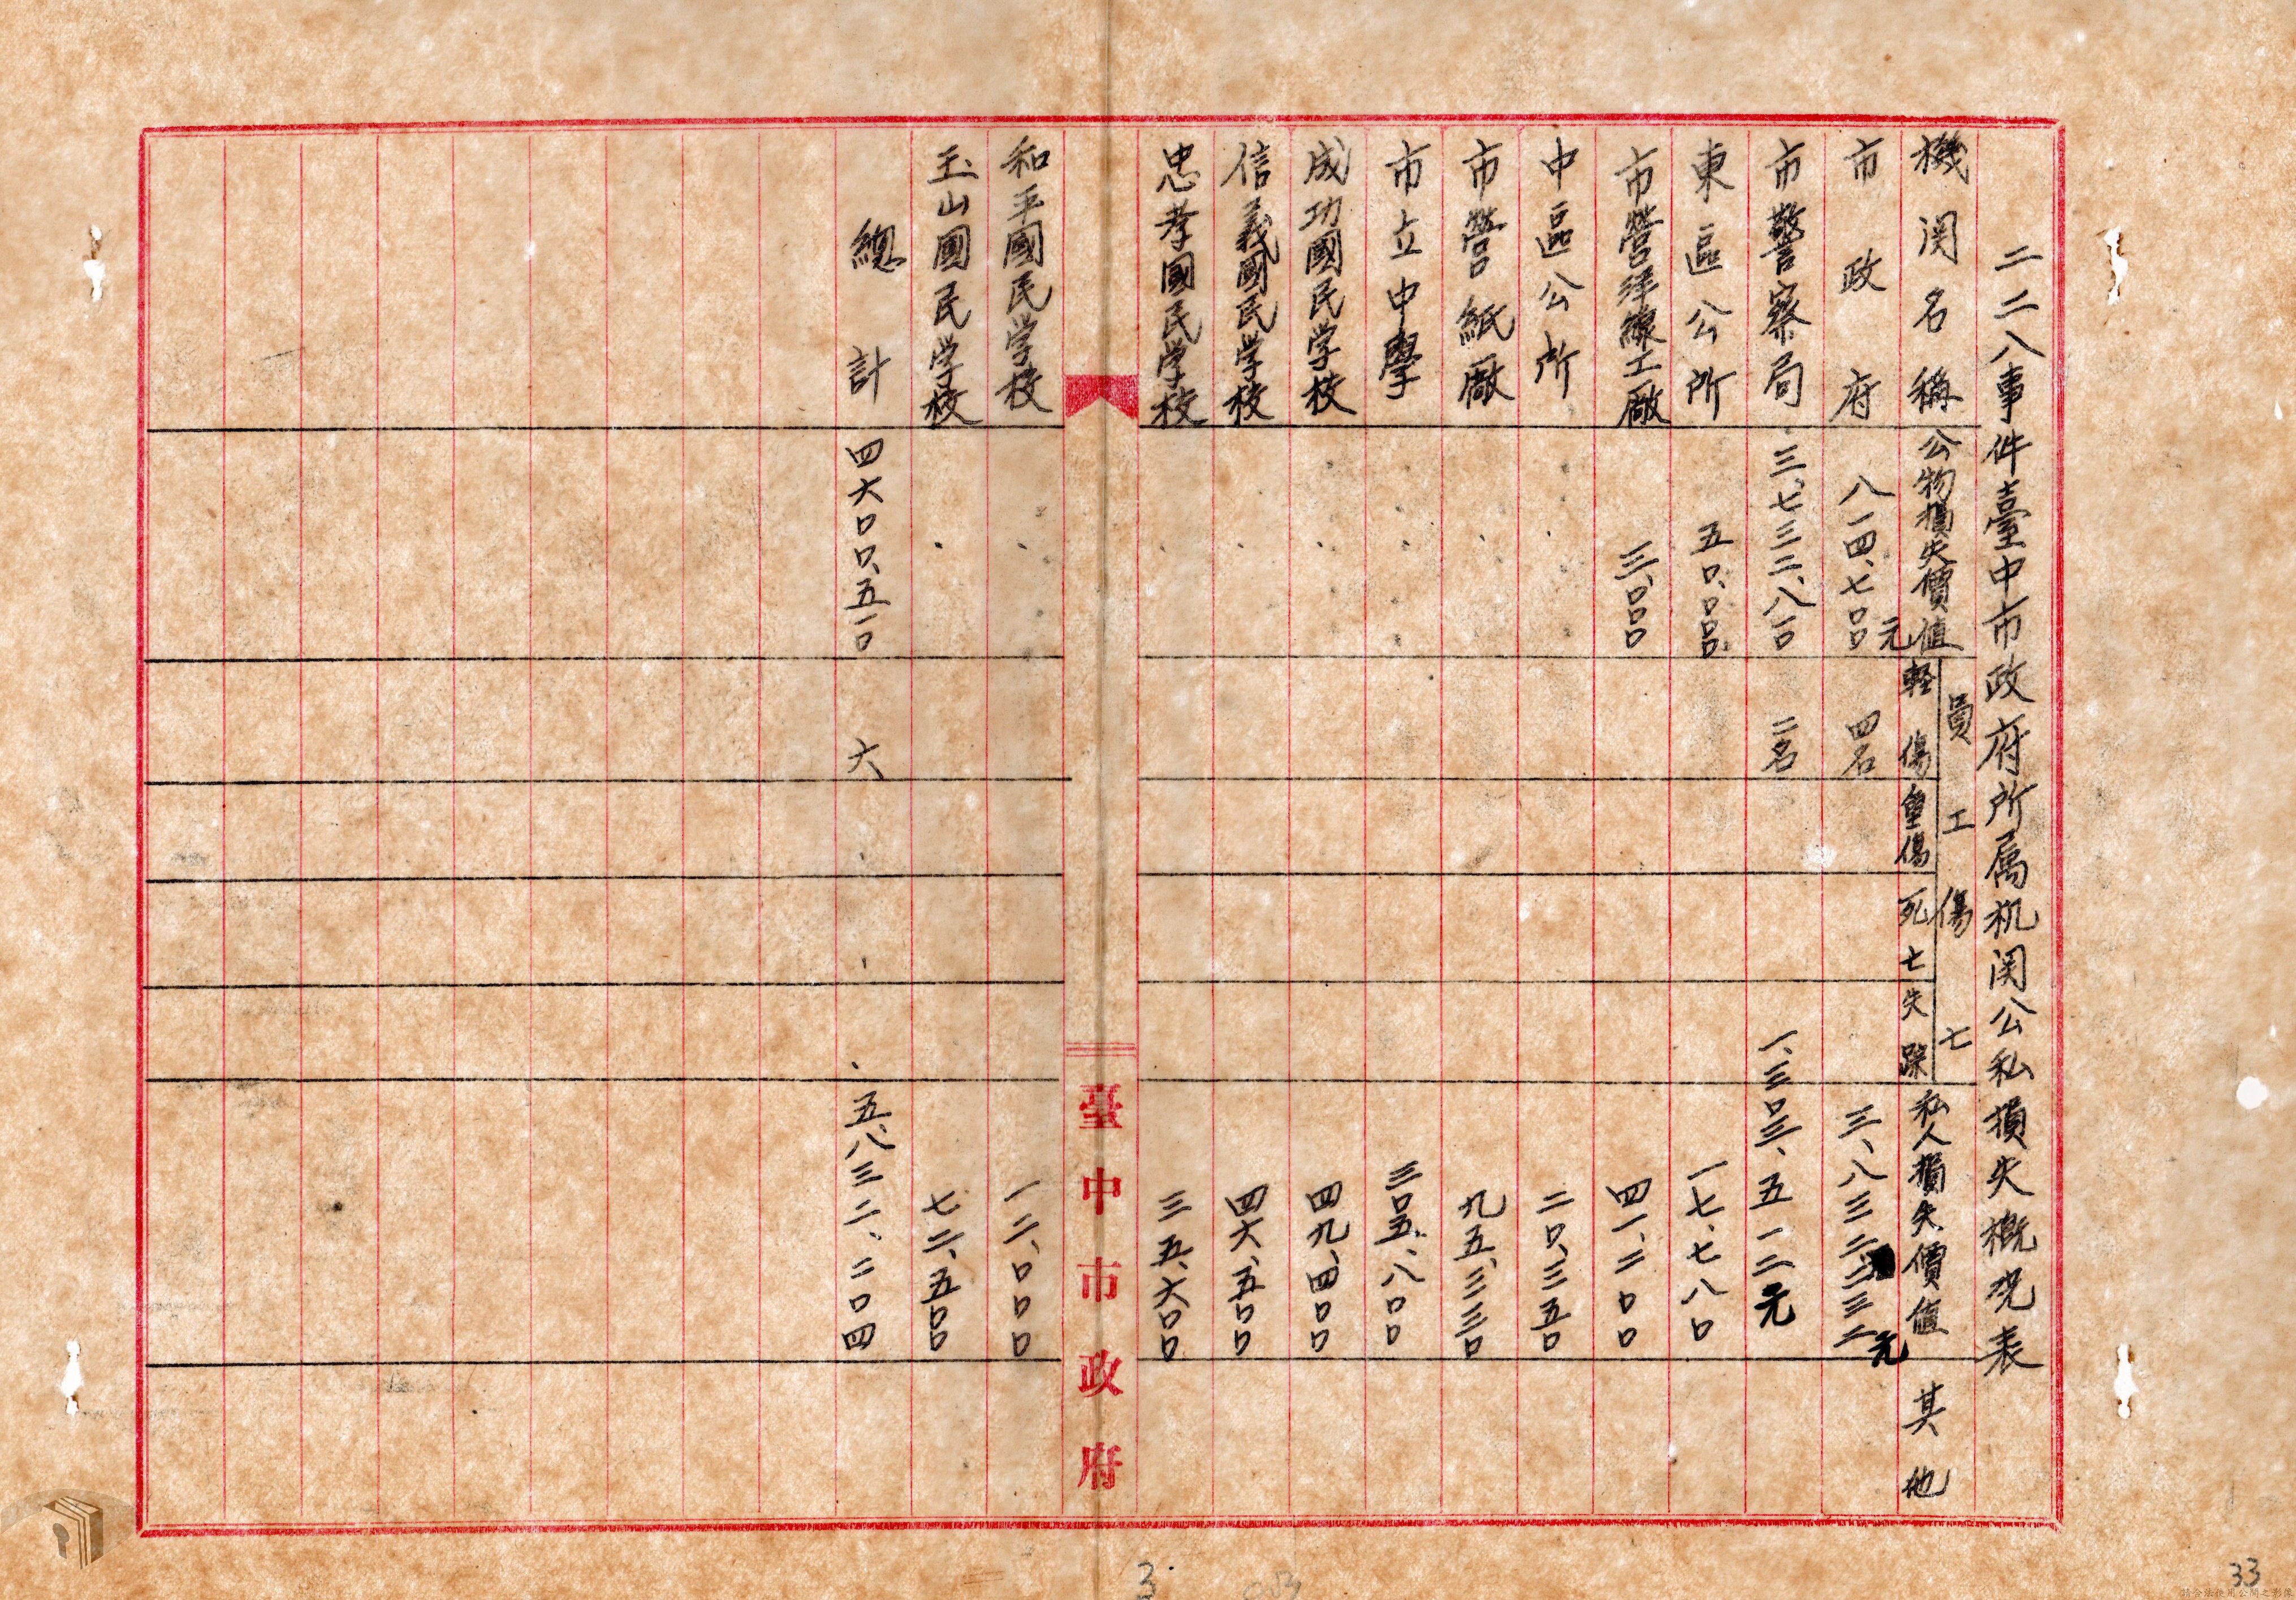 二二八事件臺中市政府所属机関公私損失概況表
機関名稱 公物損失價值 員工傷亡 輕傷 重傷 死亡 失踪 私人損失價值 其他
市政府 八一四、七〇〇元 四名 三、八三二、二三二元
市警察局 三、七三二、八一〇 二名 一、三〇三、五一二元
東區公所 五〇、〇〇〇 一七、七八〇
市營洋線工廠 三、〇〇〇 四一、二〇〇
中區公所 二〇、三五〇
市營紙廠 九五、三三〇
市立中學 三〇五、八〇〇
成功國民学校 四九、四〇〇
信義國民学校 四六、五〇〇
忠孝國民学校 三五、六〇〇
臺中市政府
和平國民学校 一二、〇〇〇
玉山國民学校 七二、五〇〇
總計 四六〇〇、五一〇 六 五、八三二、二〇四
3
33